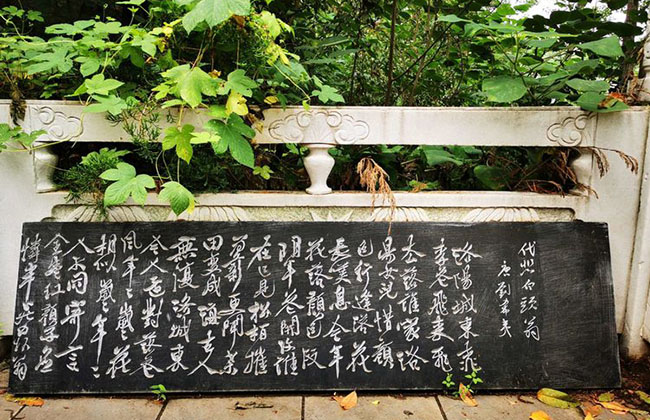 代悲白頭翁
唐劉希夷
洛陽城東桃
李花飛來飛
去落誰家洛
陽女兒惜顏
色行逢落花
長嘆息今年
花落顏色改
明年花開復誰
在已見松柏摧
為薪更聞桑
田變成海古人
無復洛城東
今人還對落花
風年〻歲〻花
相似歲〻年〻
人不同寄言
全盛紅顏子應
憐半死白頭翁